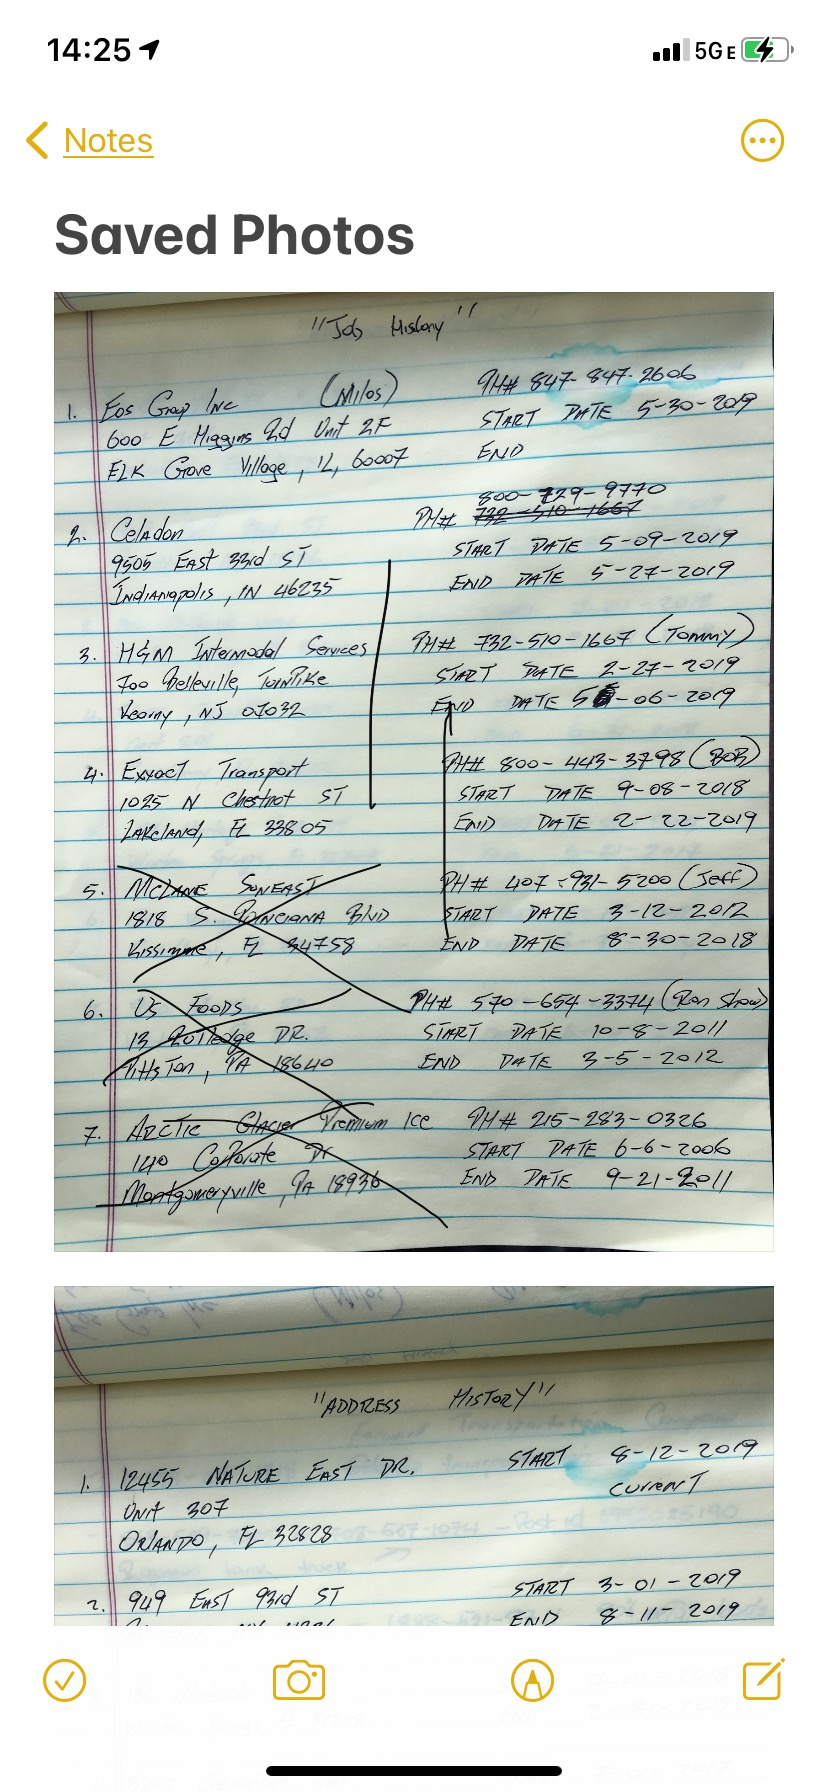 14:25
5GE
Notes
Saved Photos
"Job History"
1. Eos Group Inc (Milos) PH# 847-847-2606
600 E Higgins Rd Unit 2F START DATE 5-30-2019
ELK Grove Village, IL, 60007 END
800-729-9770
2. Celadon PH# 732-510-1667
9505 EAST 33rd ST START DATE 5-09-2019
INDIANApolis, IN 46235 END DATE 5-27-2019
3. H&M Intermodal Services PH# 732-510-1667 (Tommy)
700 Belleville TurnPike START DATE 2-27-2019
Kearny, NJ 07032 END DATE 5-06-2019
4. Exxact Transport PH# 800-443-3798 (BOB)
1025 N Chestnot ST START DATE 9-08-2018
LAKeland, FL 33805 END DATE 2-22-2019
5. McLANE SUNEAST PH# 407-931-5200 (Jeff)
1818 S. POINCIANA BLVD START DATE 3-12-2012
Kissimme, FL 34758 END DATE 8-30-2018
6. US FOODS PH# 570-654-3374 (Ron Show)
13 Rutledge DR. START DATE 10-8-2011
PittsTon, PA 18640 END DATE 3-5-2012
7. ARCTIC Glacier Premium Ice PH# 215-283-0326
140 Corporate Dr START DATE 6-6-2006
Montgomeryville, PA 18936 END DATE 9-21-2011
"ADDRESS HISTORY"
1. 12455 NATURE EAST DR. START 8-12-2019
UNit 307 CurrenT
ORLANDO, FL 32828
2. 949 EAST 93rd ST START 3-01-2019
END 8-11-2019